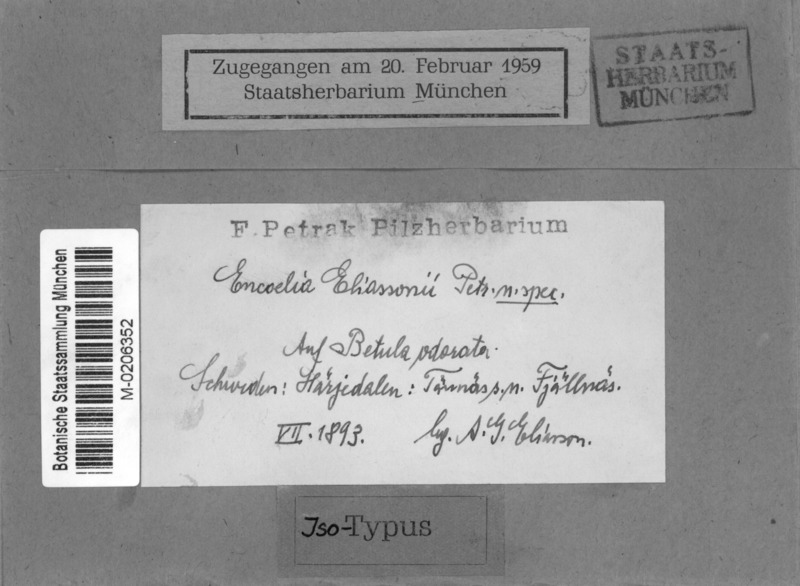 Zugegangen am 20. Februar 1959
Staatsherbarium München
STAATS-
HERBARIUM
MÜNCHEN
F. Petrak Pilzherbarium
Encoelia Eliassonii Petr. n. spec.
Auf Betula odorata.
Schweden: Härjedalen: Tännäs s, n. Fjällnäs.
VII. 1893. leg. A. G. Eliasson.
Botanische Staatssammlung München
M-0206352
Iso-Typus